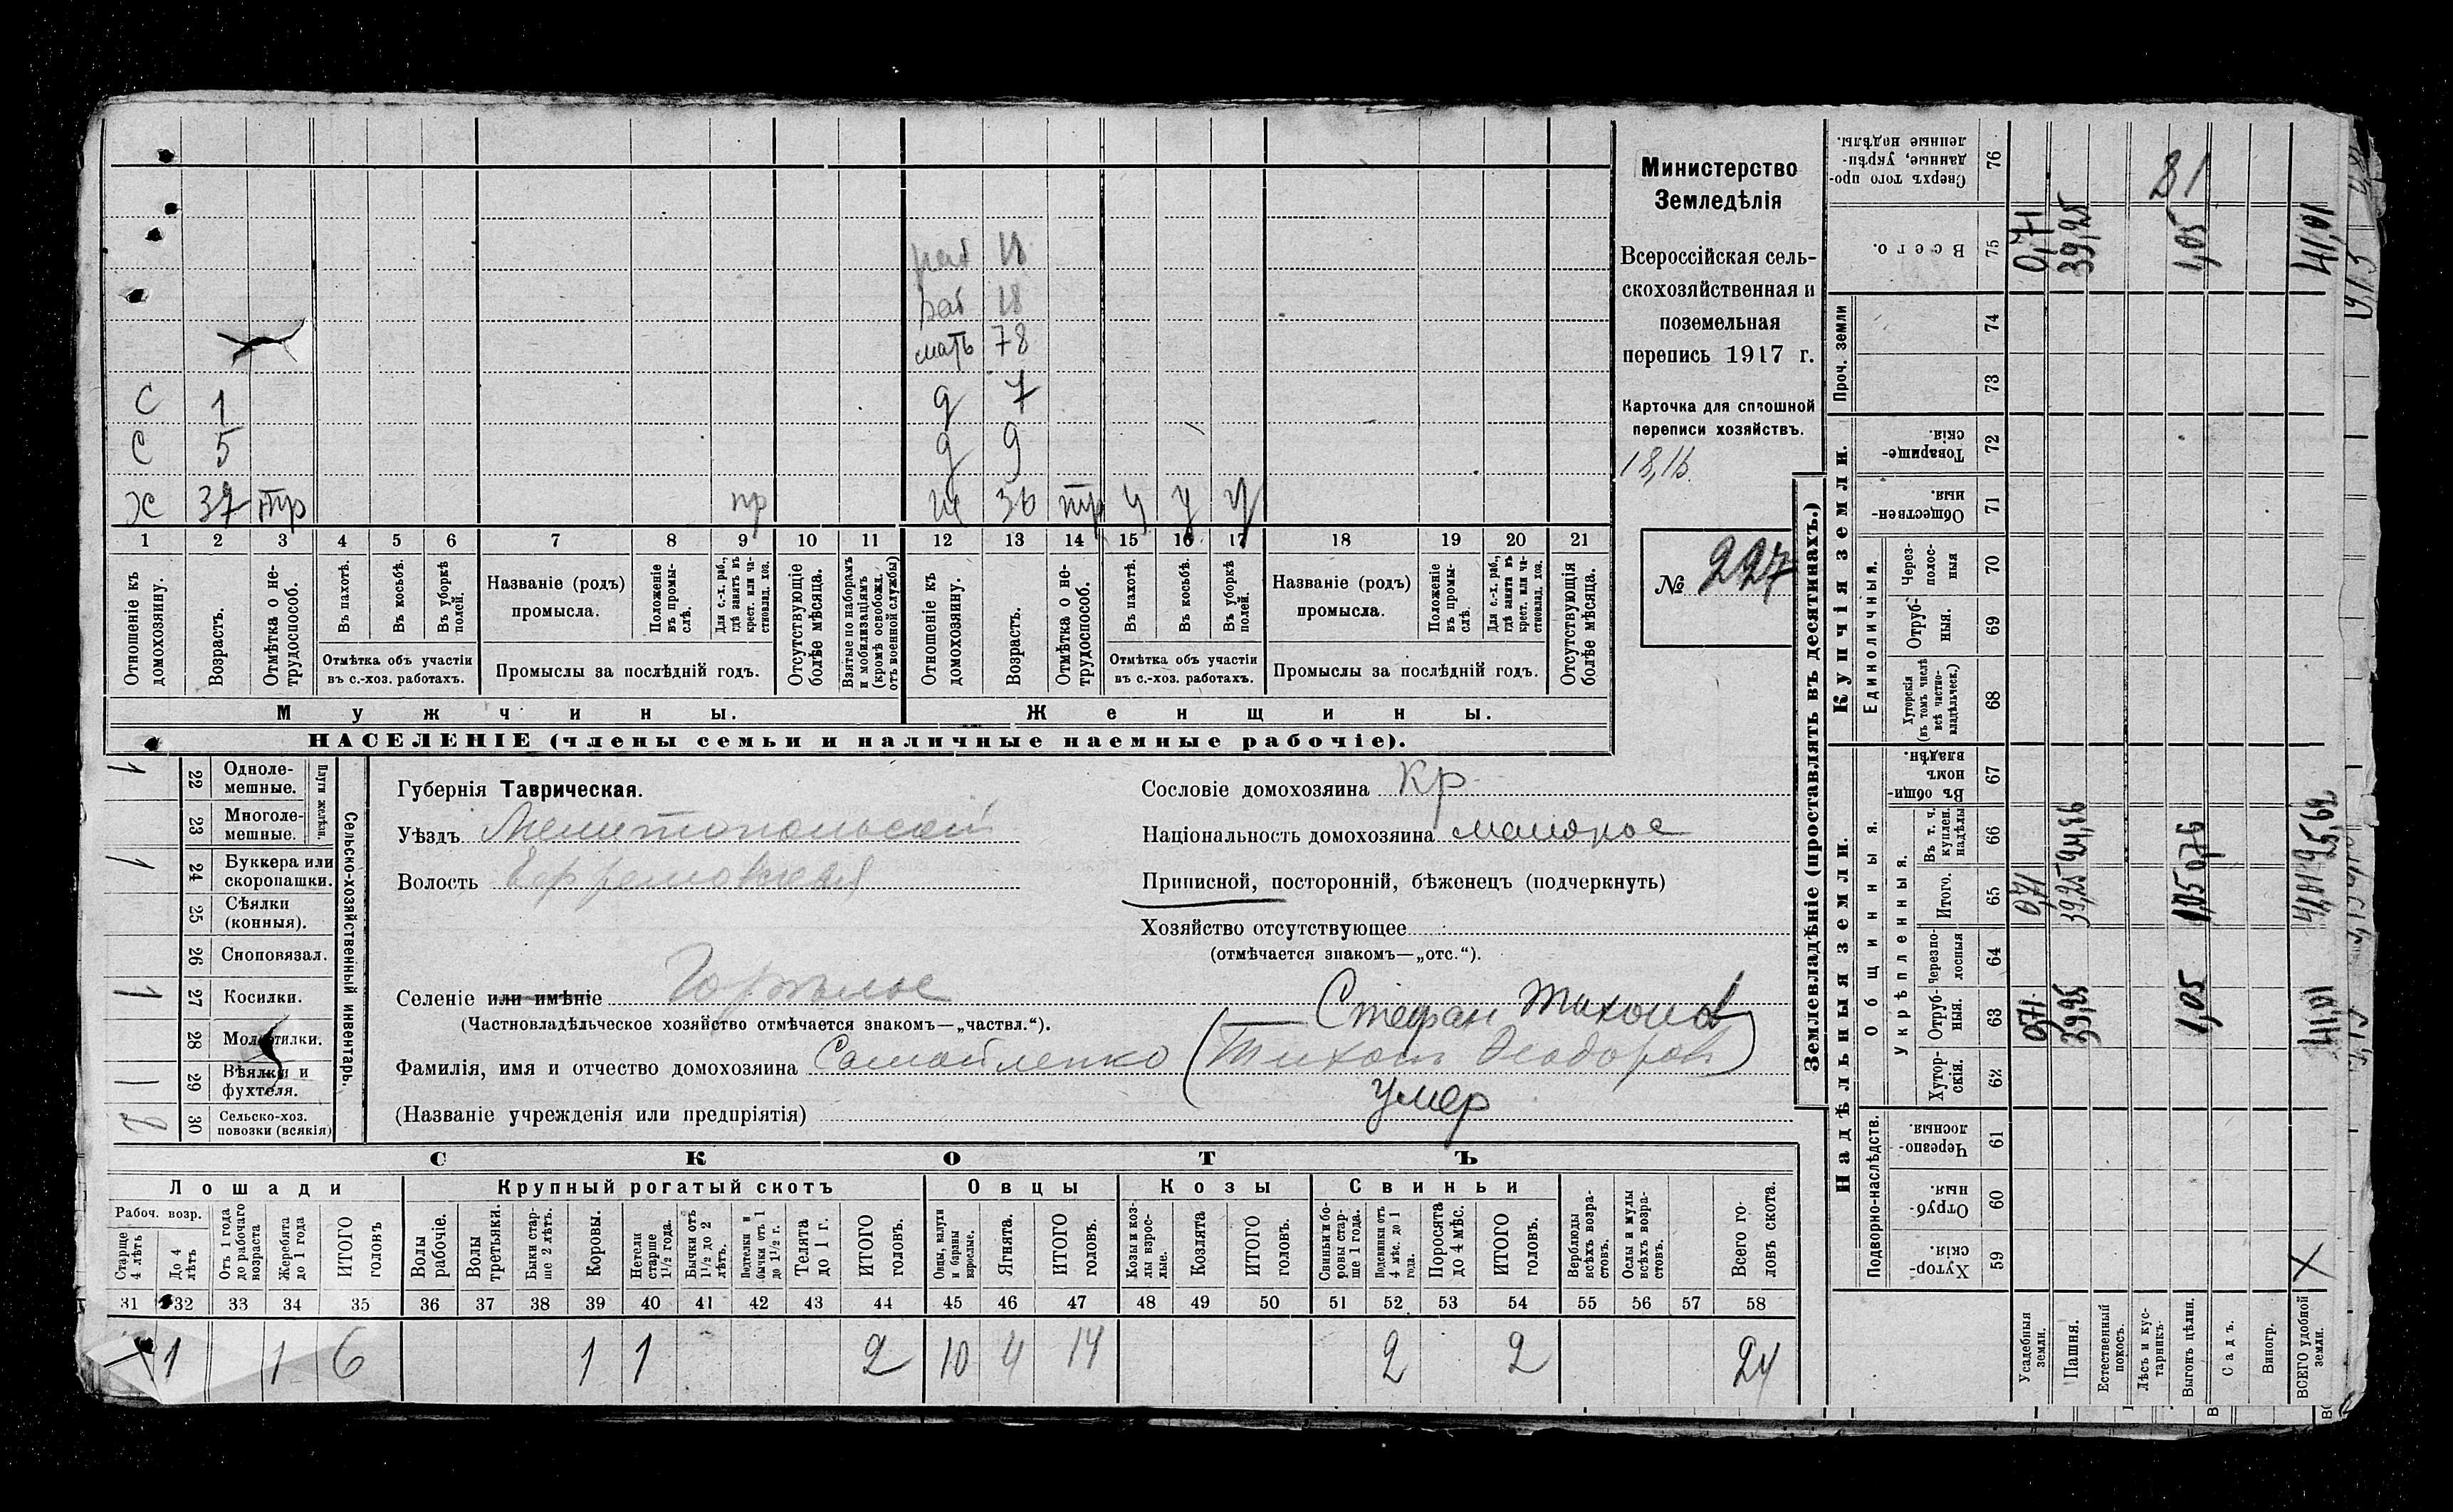 раб 18
раб 18
мать 78
С 1 д 7
С 5 д 9
Х 37 пр пр ж 36 пр у у у
1 2 3 4 5 6 7 8 9 10 11 12 13 14 15 16 17 18 19 20 21
Отношеніе къ домохозяину.
Возрастъ.
Отмѣтка о не-трудоспособ.
Въ пахотѣ.
Въ косьбѣ.
Въ уборкѣ полей.
Отмѣтка объ участіи
въ с.-хоз. работахъ.
Названіе (родъ)
промысла.
Положеніе въ промы-слѣ.
Для с.-х., раб., гдѣ занятъ въ крест. или ча-стновлад. хоз.
Промыслы за послѣдній годъ.
Отсутствующіе болѣе мѣсяца.
Взятые по наборамъ и мобилизаціямъ (кромѣ освобожд. отъ военной службы)
Отношеніе къ домохозяину.
Возрастъ.
Отмѣтка о не-трудоспособ.
Въ пахотѣ.
Въ косьбѣ.
Въ уборкѣ полей.
Отмѣтка объ участіи
въ с.-хоз. работахъ.
Названіе (родъ)
промысла.
Положеніе въ промы-слѣ.
Для с.-х., раб., гдѣ занятъ въ крест. или ча-стновлад. хоз.
Промыслы за послѣдній годъ.
Отсутствующія болѣе мѣсяца.
Мужчины.
Женщины.
НАСЕЛЕНІЕ (члены семьи и наличные наемные рабочіе).
Министерство
Земледѣлія
Всероссійская сель-
скохозяйственная и
поземельная
перепись 1917 г.
Карточка для сплошной
переписи хозяйствъ.
18,16.
№ 227
1 22 Одноле-мешные.
23 Многоле-мешные.
Плуги желѣзн.
1 24 Буккера или скоропашки.
25 Сѣялки (конныя).
26 Сноповязал.
1 27 Косилки.
28 Молотилки.
1 29 Вѣялки и фухтеля.
2 30 Сельско-хоз. повозки (всякія)
Сельско-хозяйственный инвентарь.
Губернія Таврическая.
Уѣздъ Мелитопольскій
Волость Ефремовская
Селеніе или имѣніе Горѣлое
(Частновладѣльческое хозяйство отмѣчается знакомъ—„частвл.“).
Стефан Тихонов
Фамилія, имя и отчество домохозяина Самойленко (Тихонъ Феодоров)
умер
(Названіе учрежденія или предпріятія)
Сословіе домохозяина Кр
Національность домохозяина малорос
Приписной, посторонній, бѣженецъ (подчеркнуть)
Хозяйство отсутствующее
(отмѣчается знакомъ—„отс.“).
СКОТЪ
Лошади
Крупный рогатый скотъ
Овцы
Козы
Свиньи
Рабоч. возр.
Старше 4 лѣтъ
До 4 лѣтъ
Отъ 1 года до рабочаго возраста
Жеребята до 1 года
ИТОГО головъ
Волы рабочіе.
Волы третьяки.
Быки стар-ше 2 лѣтъ.
Коровы.
Нетели старше 1½ года.
Бычки отъ 1½ до 2 лѣтъ.
Подтелки и бычки отъ 1 до 1½ г.
Телята до 1 г.
ИТОГО головъ.
Овцы, валухи и бараны взрослые.
Ягнята.
ИТОГО головъ.
Козы и коз-лы взрос-лые.
Козлята
ИТОГО головъ.
Свиньи и бо-ровы стар-ше 1 года.
Подсвинки отъ 4 мѣс. до 1 года.
Поросята до 4 мѣс.
ИТОГО головъ.
Верблюды всѣхъ возра-стовъ.
Ослы и мулы всѣхъ возра-стовъ.
Всего го-ловъ скота.
31 32 33 34 35 36 37 38 39 40 41 42 43 44 45 46 47 48 49 50 51 52 53 54 55 56 57 58
1 1 6 1 1 2 10 4 14 2 2 24
Землевладѣніе (проставлять въ десятинахъ.)
Купчія земли.
Надѣльныя земли.
Проч. земли
Единоличныя.
Общинныя.
Укрѣпленныя.
Подворно-наслѣдств.
Сверхъ того про-данные, укрѣп-ленные надѣлы. 76
Всего. 75
74
73
Товарище-скія. 72
Обществен-ныя. 71
Через-полос-ныя 70
Отруб-ныя. 69
Хуторскія (въ томъ числѣ всѣ частно-владѣльческ.) 68
Въ общи-номъ владѣн. 67
Въ т. ч. куплен. надѣлы 66
Итого. 65
Черезпо-лосныя 64
Отруб-ныя. 63
Хутор-скія. 62
Черезпо-лосныя. 61
Отруб-ныя. 60
Хутор-скія. 59
Усадебныя земли. 0,71 0,71 0,71
Пашня. 39,25 39,25 24,86 39,25
Естественный покосъ.
Лѣсъ и кус-тарникъ.
Выгонъ цѣлин. 1,05 1,05 0,76 1,05 81
Садъ.
Виногр.
ВСЕГО удобной земли. Х 41,01 41,01 25,62 41,01